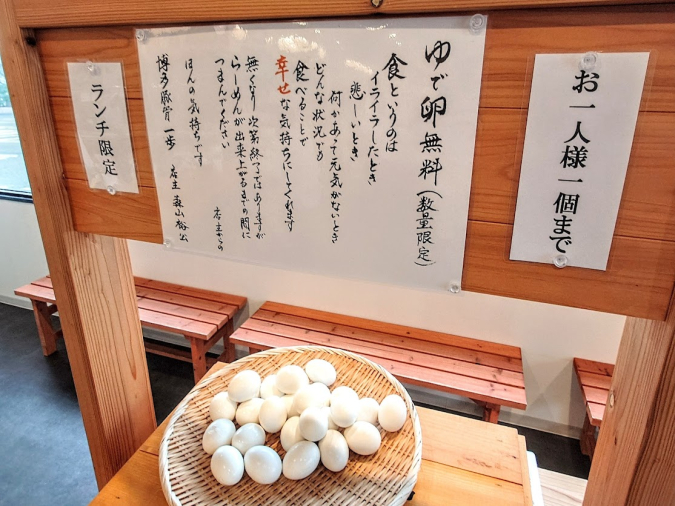 お一人様一個まで
ゆで卵無料(数量限定)
食というのは
イライラしたとき
悲しいとき
何かあって元気がないとき
どんな状況でも
食べることで
幸せな気持ちにしてくれます
無くなり次第終了ではありますが
らーめんが出来上がるまでの間に
つまんでください
店主からの
ほんの気持ちです
博多豚骨 一歩 店主 森山裕公
ランチ限定